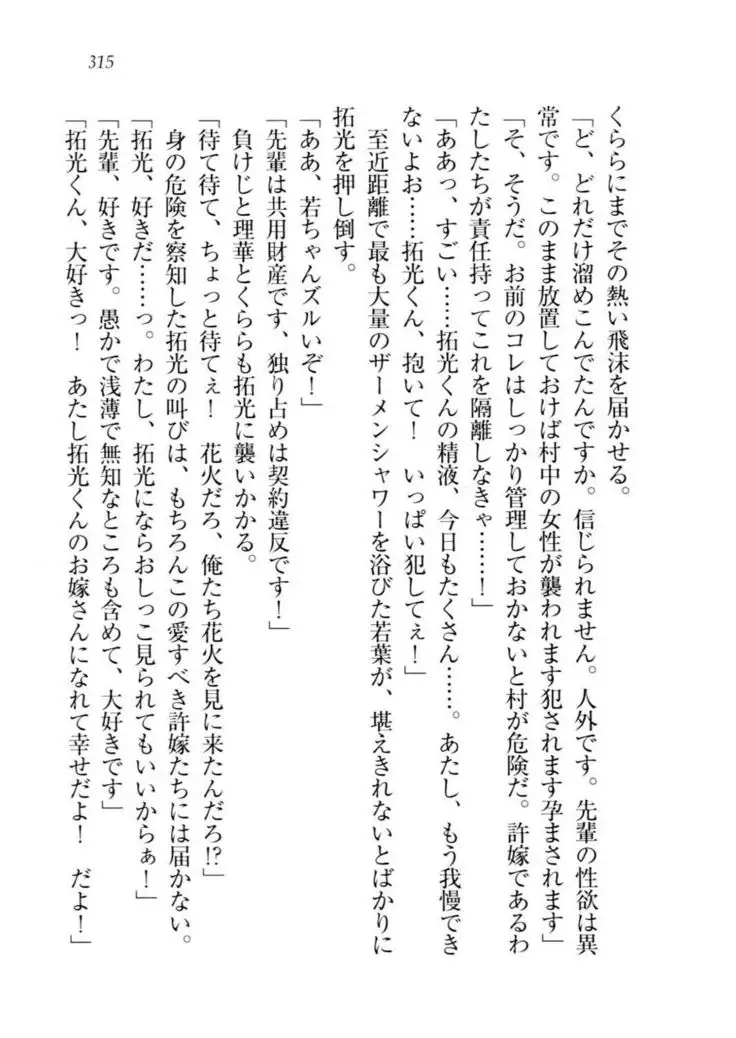 315
くららにまでその熱い飛沫を届かせる。
「ど、どれだけ溜めこんでたんですか。信じられません。人外です。先輩の性欲は異
常です。このまま放置しておけば村中の女性が襲われます犯されます孕まされます」
「そ、そうだ。お前のコレはしっかり管理しておかないと村が危険だ。許嫁であるわ
たしたちが責任持ってこれを隔離しなきゃ……！」
「ああっ、すごい……拓光くんの精液、今日もたくさん……。あたし、もう我慢でき
ないよお……拓光くん、抱いて！　いっぱい犯してぇ！」
至近距離で最も大量のザーメンシャワーを浴びた若葉が、堪えきれないとばかりに
拓光を押し倒す。
「ああ、若ちゃんズルいぞ！」
「先輩は共用財産です、独り占めは契約違反です！」
負けじと理華とくららも拓光に襲いかかる。
「待て待て、ちょっと待てぇ！　花火だろ、俺たち花火を見に来たんだろ!?」
身の危険を察知した拓光の叫びは、もちろんこの愛すべき許嫁たちには届かない。
「拓光、好きだ……っ。わたし、拓光にならおしっこ見られてもいいからぁ！」
「先輩、好きです。愚かで浅薄で無知なところも含めて、大好きです」
「拓光くん、大好きっ！　あたし拓光くんのお嫁さんになれて幸せだよ！　だよ！」